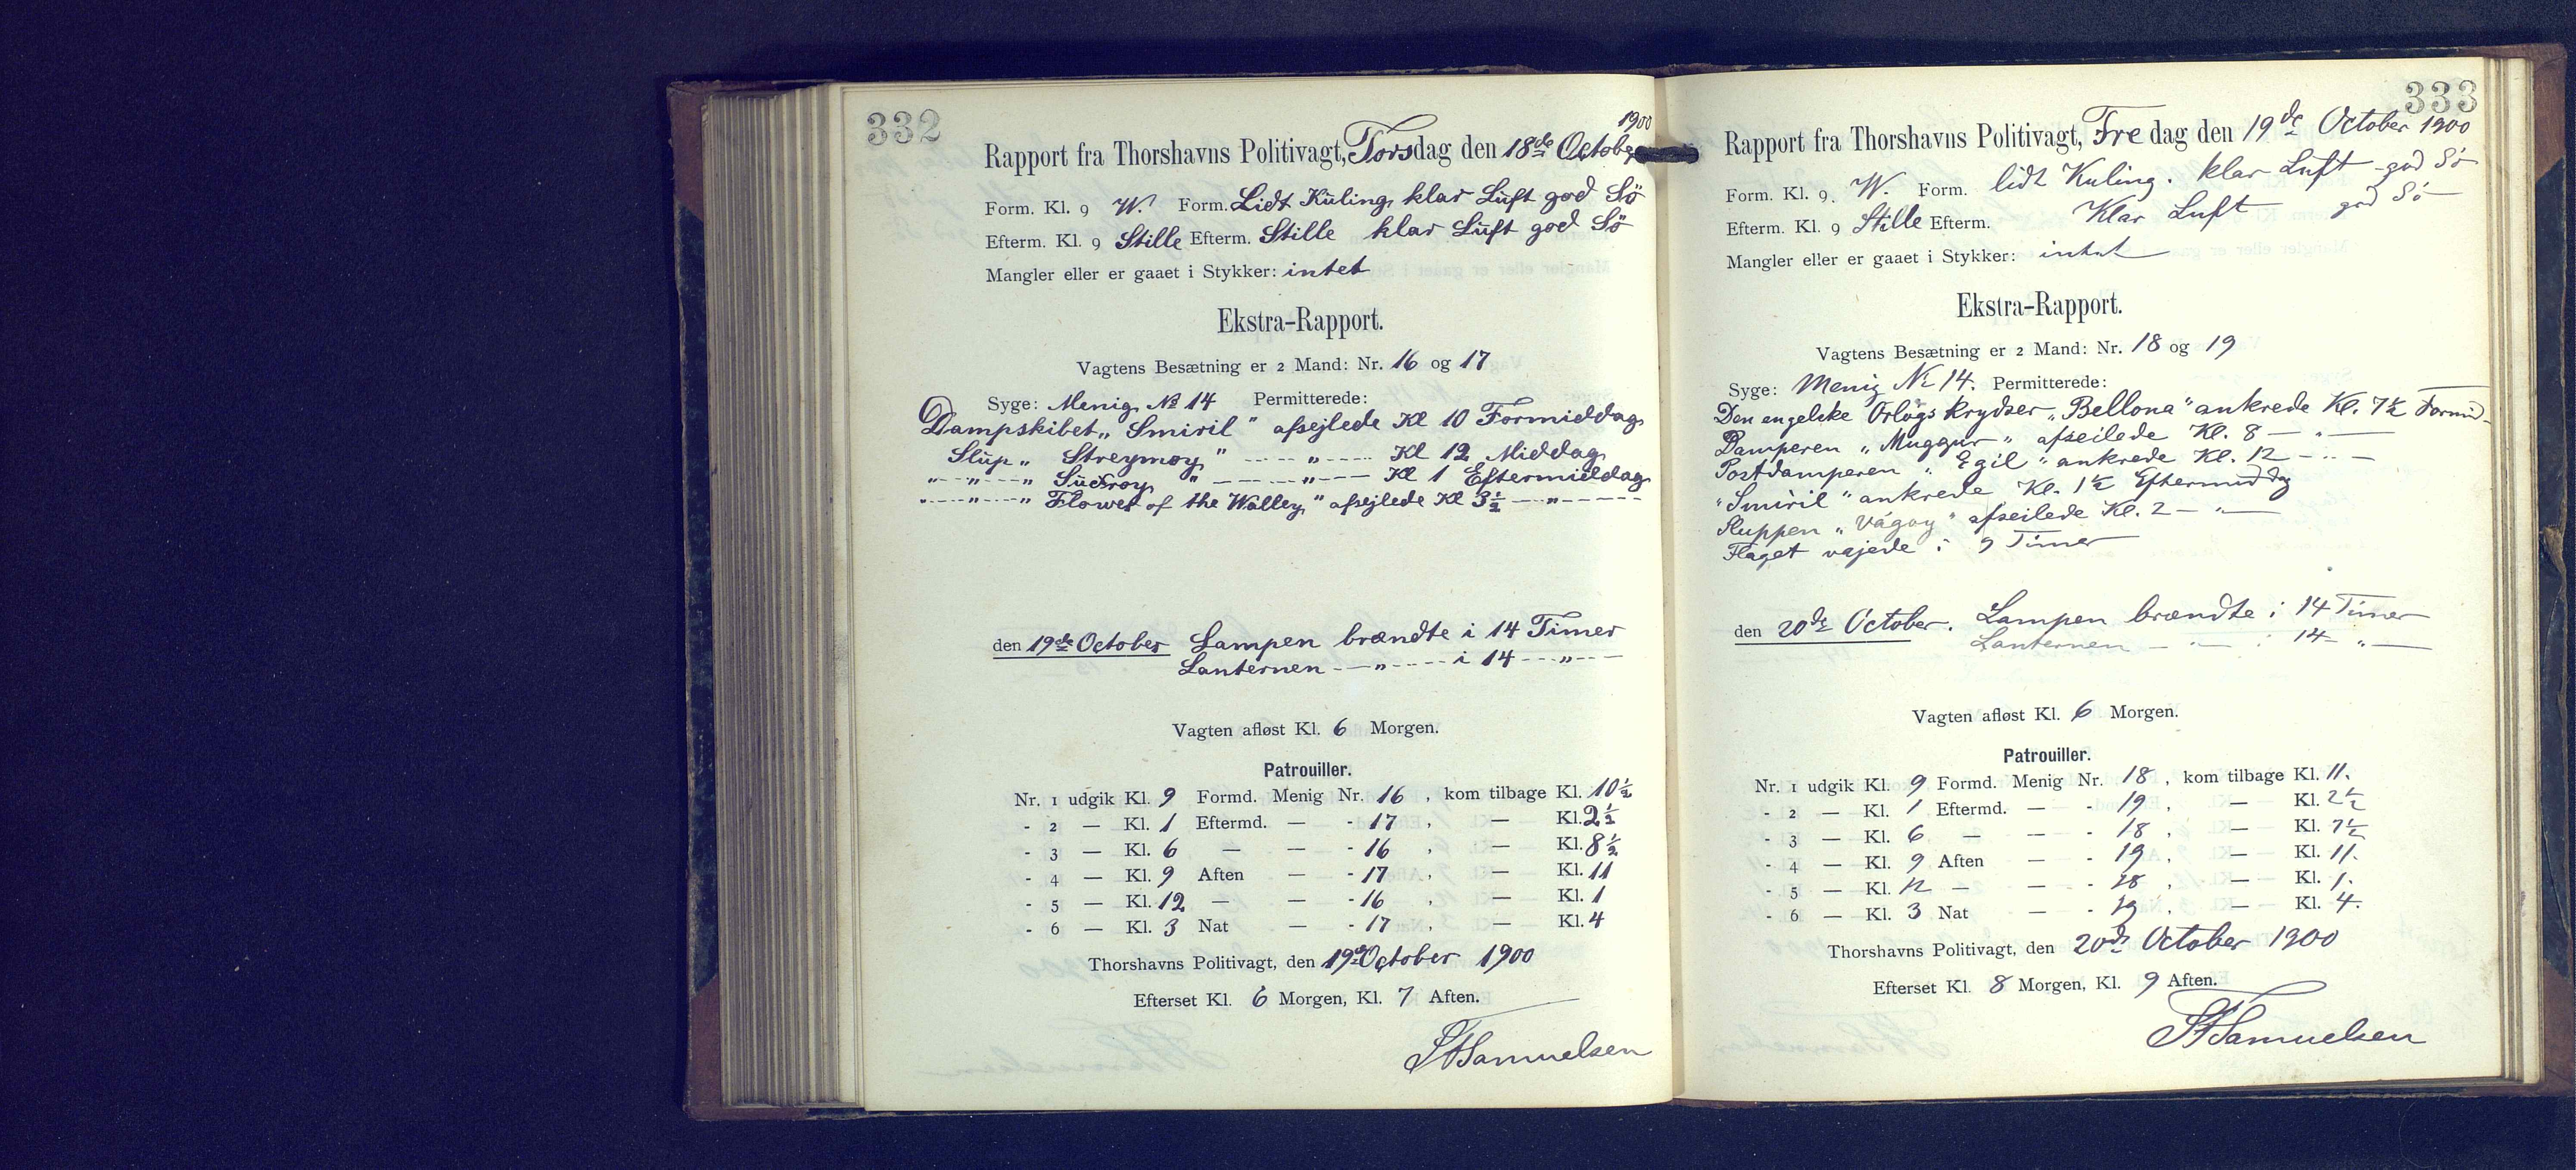 332
Rapport fra Thorshavns Politivagt, Torsdag den 18de October 1900
Form. Kl. 9 W. Form. Lidt Kuling, klar Luft god Sö
Efterm. Kl. 9 Stille Efterm. Stille klar Luft god Sö
Mangler eller er gaaet i Stykker: intet
Ekstra-Rapport.
Vagtens Besætning er 2 Mand: Nr. 16 og 17
Syge: Menig № 14 Permitterede:
Dampskibet „Smiril" afsejlede Kl 10 Formiddag
Slup „Streymoy" — „ — Kl 12 Middag
„ — „ — „ Sudroy " — „ — Kl 1 Eftermiddag
„ — „ — „ Flower of the Walley" afsejlede Kl 3½ — „ —
den 19de October Lampen brændte i 14 Timer
Lanternen — „ — i 14 — „ —
Vagten afløst Kl. 6 Morgen.
Patrouiller.
Nr. 1 udgik Kl. 9 Formd. Menig Nr. 16 , kom tilbage Kl. 10½
- 2 — Kl. 1 Eftermd. — - 17 , — Kl. 2½
- 3 — Kl. 6 — — - 16 , — Kl. 8½
- 4 — Kl. 9 Aften — - 17 , — Kl. 11
- 5 — Kl. 12 — — - 16 , — Kl. 1
- 6 — Kl. 3 Nat — - 17 , — Kl. 4
Thorshavns Politivagt, den 19de October 1900
Efterset Kl. 6 Morgen, Kl. 7 Aften.
Samuelsen
333
Rapport fra Thorshavns Politivagt, Fredag den 19de October 1900
Form. Kl. 9. W. Form. lidt Kuling. klar Luft god Sö
Efterm. Kl. 9 Stille Efterm. Klar Luft god Sö
Mangler eller er gaaet i Stykker: intet
Ekstra-Rapport.
Vagtens Besætning er 2 Mand: Nr. 18 og 19
Syge: Menig № 14. Permitterede:
Den engelske Orlogs krydser „Bellona" ankrede Kl. 7½ Formid
Damperen „Muggur" afseilede Kl. 8 — „ —
Postdamperen „Egil" ankrede Kl. 12 — „ —
"Smiril" ankrede Kl. 1½ Eftermiddag
Sluppen „Vágoy" afseilede Kl. 2 — „ —
Flaget vajede i 9 Timer
den 20de October. Lampen brændte i 14 Timer
Lanternen — „ — i 14 — „ —
Vagten afløst Kl. 6 Morgen.
Patrouiller.
Nr. 1 udgik Kl. 9 Formd. Menig Nr. 18 , kom tilbage Kl. 11.
- 2 — Kl. 1 Eftermd. — - 19 , — Kl. 2½
- 3 — Kl. 6 — — - 18 , — Kl. 7½
- 4 — Kl. 9 Aften — - 19 , — Kl. 11.
- 5 — Kl. 12 — — - 18 , — Kl. 1.
- 6 — Kl. 3 Nat — - 19 , — Kl. 4.
Thorshavns Politivagt, den 20de October 1900
Efterset Kl. 8 Morgen, Kl. 9 Aften.
Samuelsen